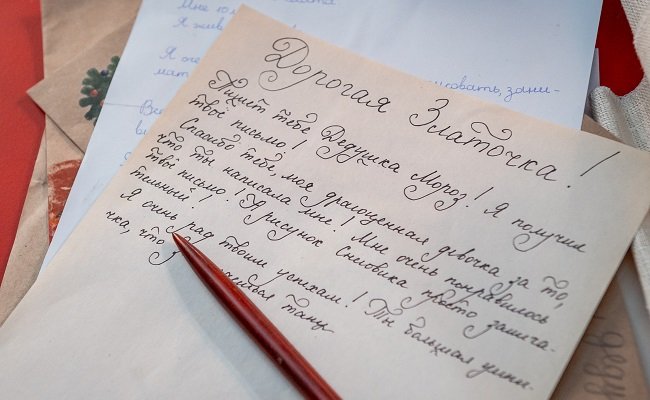 Мне
Я жив
Я оче
мат
рисовать, зани-
Дорогая Златочка!
Пишет тебе Дедушка Мороз! Я получил
твоё письмо!
Спасибо тебе, моя драгоценная девочка за то,
что ты написала мне! Мне очень понравилось
твоё письмо! А рисунок Снеговика просто замеча-
тельный!
Я очень рад твоим успехам! Ты большая умни-
чка, что
танц